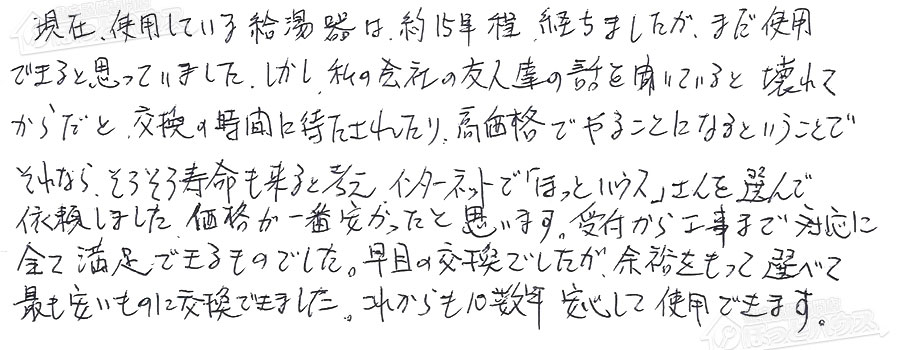 現在、使用している給湯器は、約15年程、経ちましたが、まだ使用
できると思っていました。しかし、私の会社の友人達の話を聞いていると 壊れて
からだと、交換の時間に待たされたり、高価格でやることになるということで
それなら、そろそろ寿命も来ると考え インターネットで「ほっとハウス」さんを選んで
依頼しました。価格が一番安かったと思います。受付から工事まで 対応に
全て満足できるものでした。早目の交換でしたが、余裕をもって選べて
最も安いものに交換できました。これからも10数年 安心して使用できます。